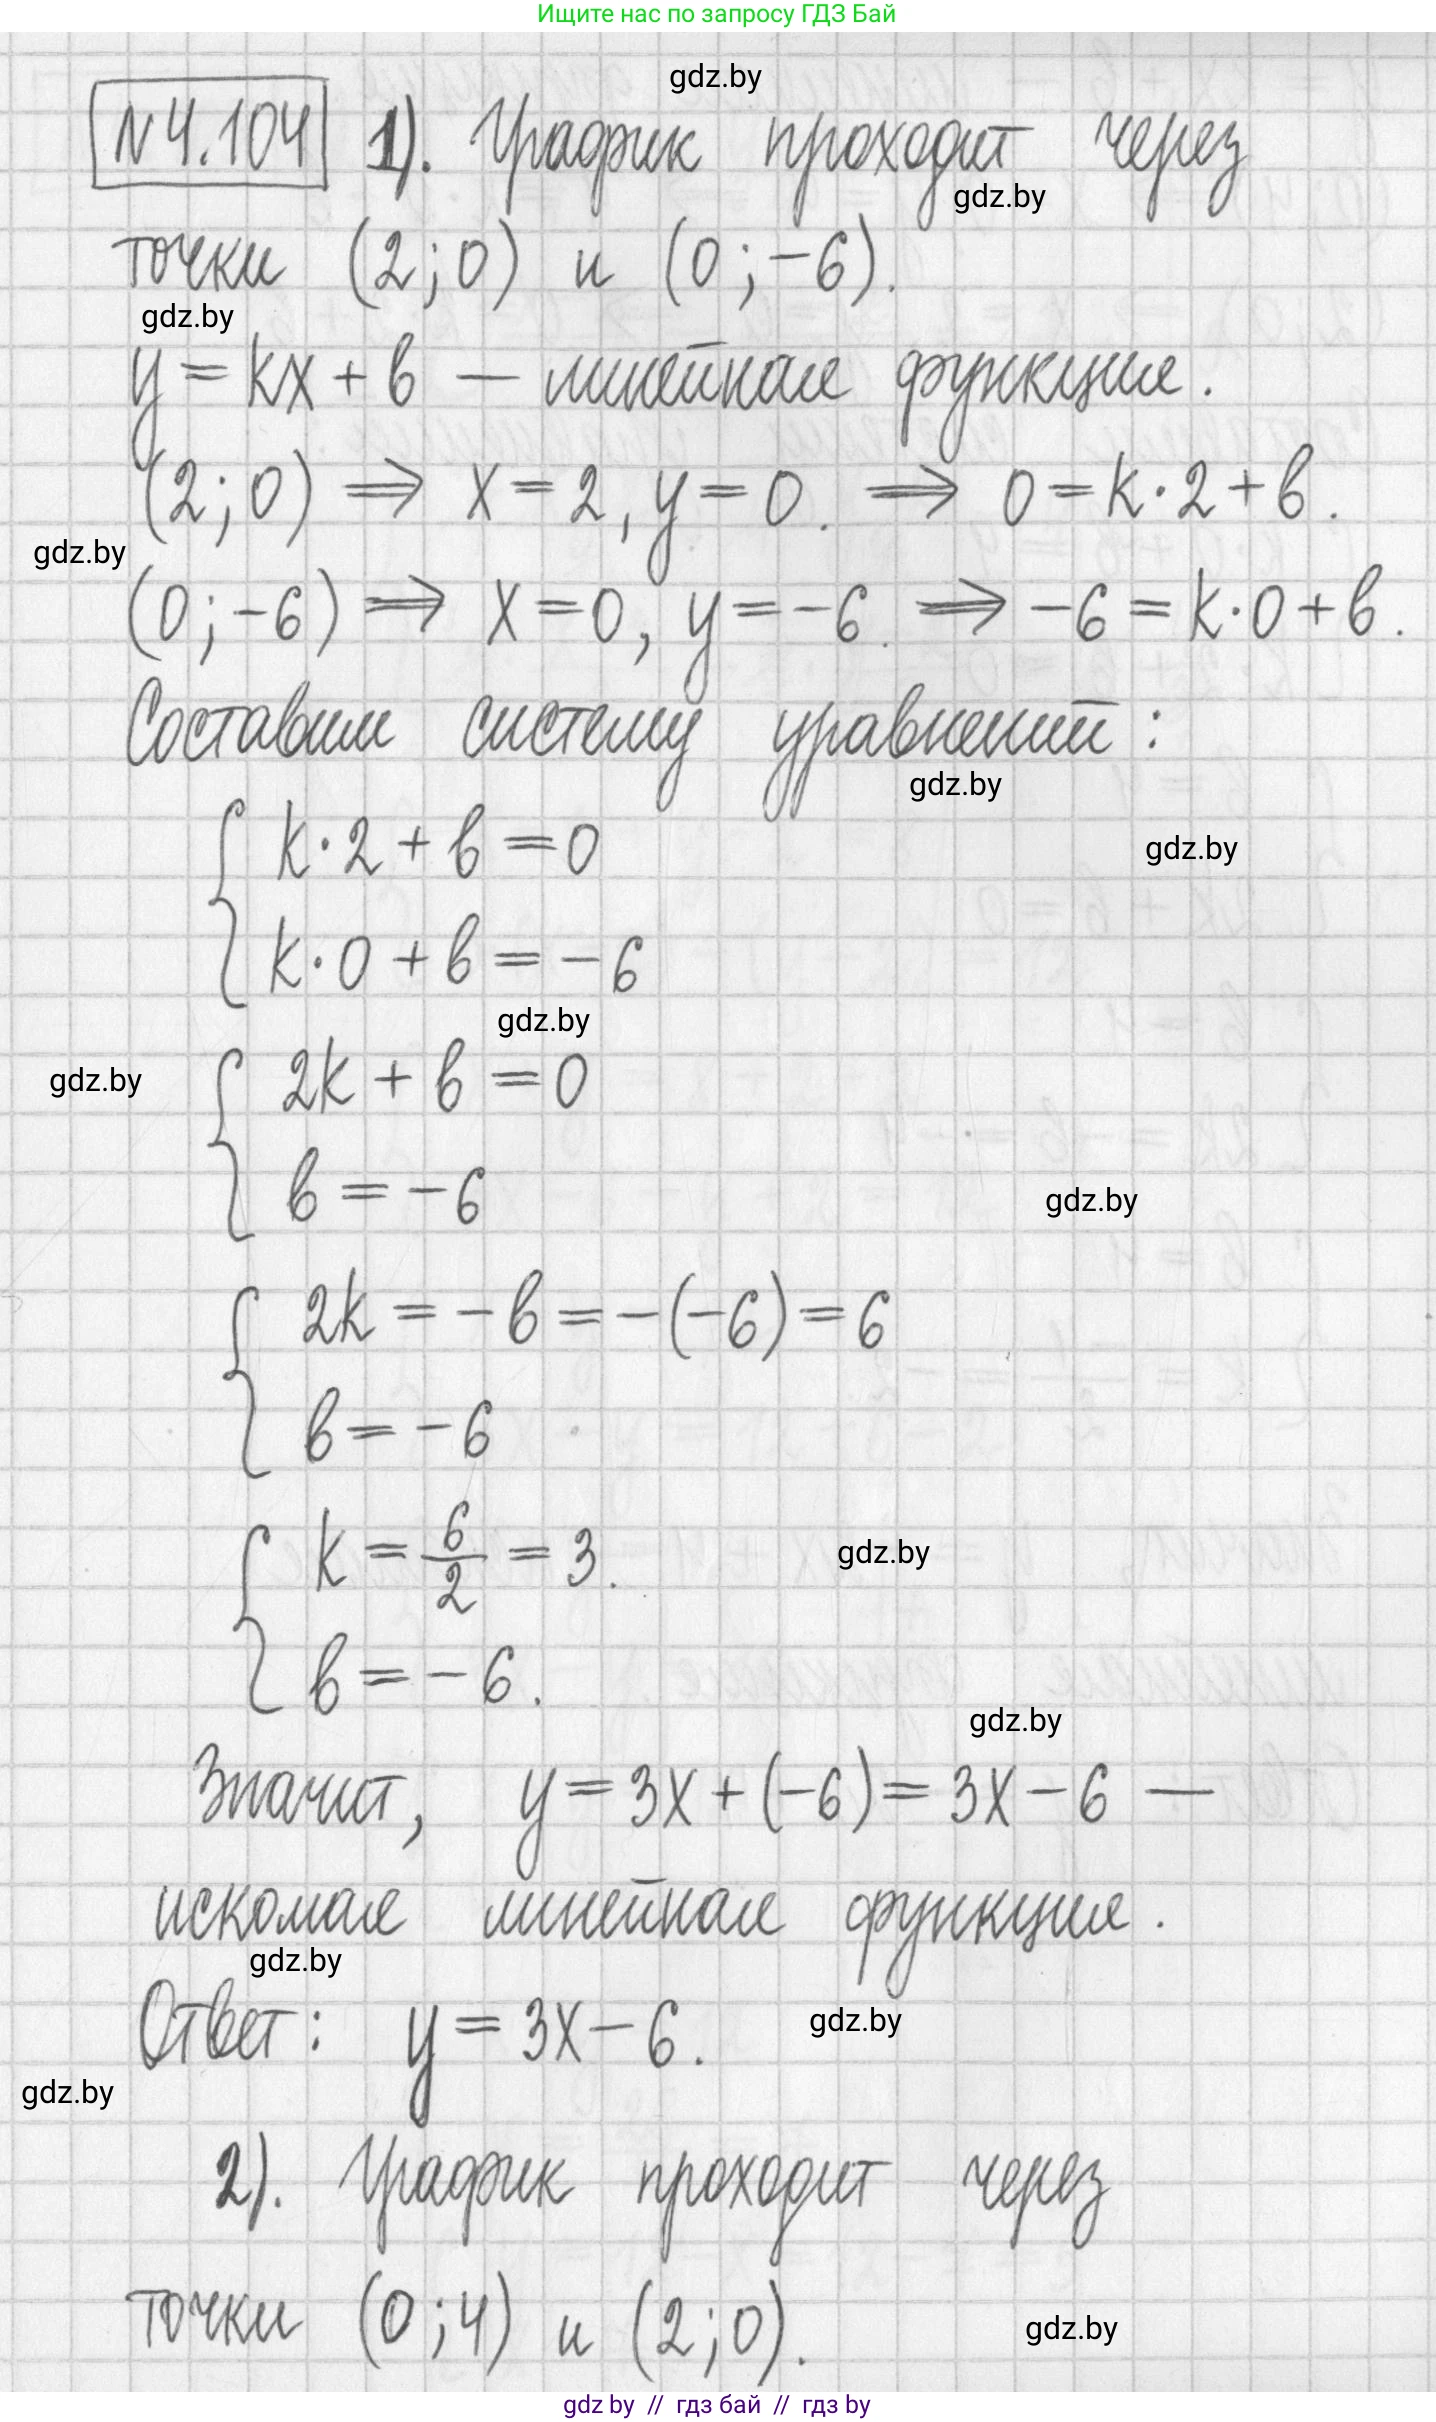 Ищите нас по запросу ГДЗ Бай
gdz.by
№4.104 1). График проходит через
gdz.by
точки (2;0) и (0;-6).
gdz.by
y = kx + b — линейная функция.
(2;0) ⟹ x = 2, y = 0. ⟹ 0 = k·2 + b.
gdz.by
(0;-6) ⟹ x = 0, y = -6. ⟹ -6 = k·0 + b.
Составим систему уравнений:
gdz.by
{ k·2 + b = 0
gdz.by
k·0 + b = -6
gdz.by
{ 2k + b = 0
gdz.by
b = -6
gdz.by
{ 2k = -b = -(-6) = 6
b = -6
{ k = 6/2 = 3.
gdz.by
b = -6.
gdz.by
Значит, y = 3x + (-6) = 3x - 6 —
искомая линейная функция.
gdz.by
Ответ: y = 3x - 6.
gdz.by
gdz.by
2). График проходит через
точки (0;4) и (2;0).
gdz.by
gdz by // гдз бай // гдз by